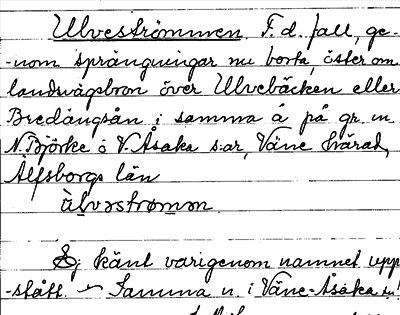 Ulveströmmen. F. d. fall, ge-
-nom sprängningar nu borta, öster om
landsvägsbron över Ulvebäcken eller
Bredängsån i samma å på gr. m.
N. Björke o V. Åsaka s:ar, Väne härad,
Älfsborgs län
ùlvəstrømən.
Ej känt varigenom namnet upp
-stått. – Samma n. i Väne-Åsaka